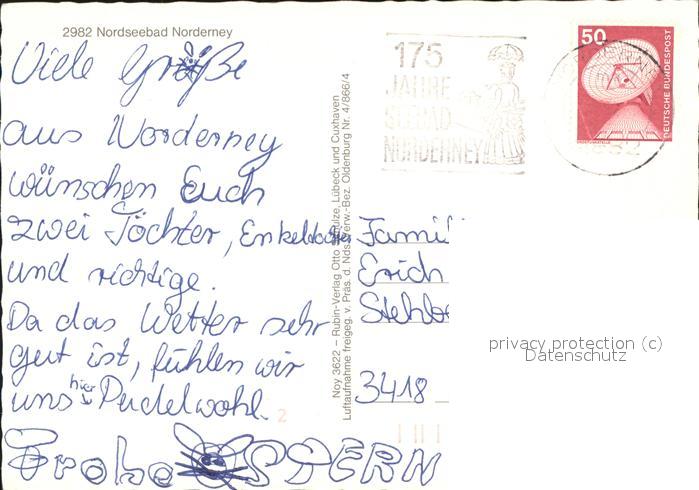 2982 Nordseebad Norderney
Viele Grüße
aus Norderney
wünschen Euch
zwei Töchter, Enkeltochter
und richtige.
Da das Wetter sehr
gut ist, fühlen wir
uns hier Pudelwohl.
Frohe OSTERN
2
Noy 3622 – Rubin-Verlag Otto Schulze, Lübeck und Cuxhaven
Luftaufnahme freigeg. v. Präs. d. Nds. Verw.-Bez. Oldenburg Nr. 4/866/4
175
JAHRE
SEEBAD
NORDERNEY
50
DEUTSCHE BUNDESPOST
ERDEFUNKSTELLE
Famil
Erich
3418
privacy protection (c)
Datenschutz